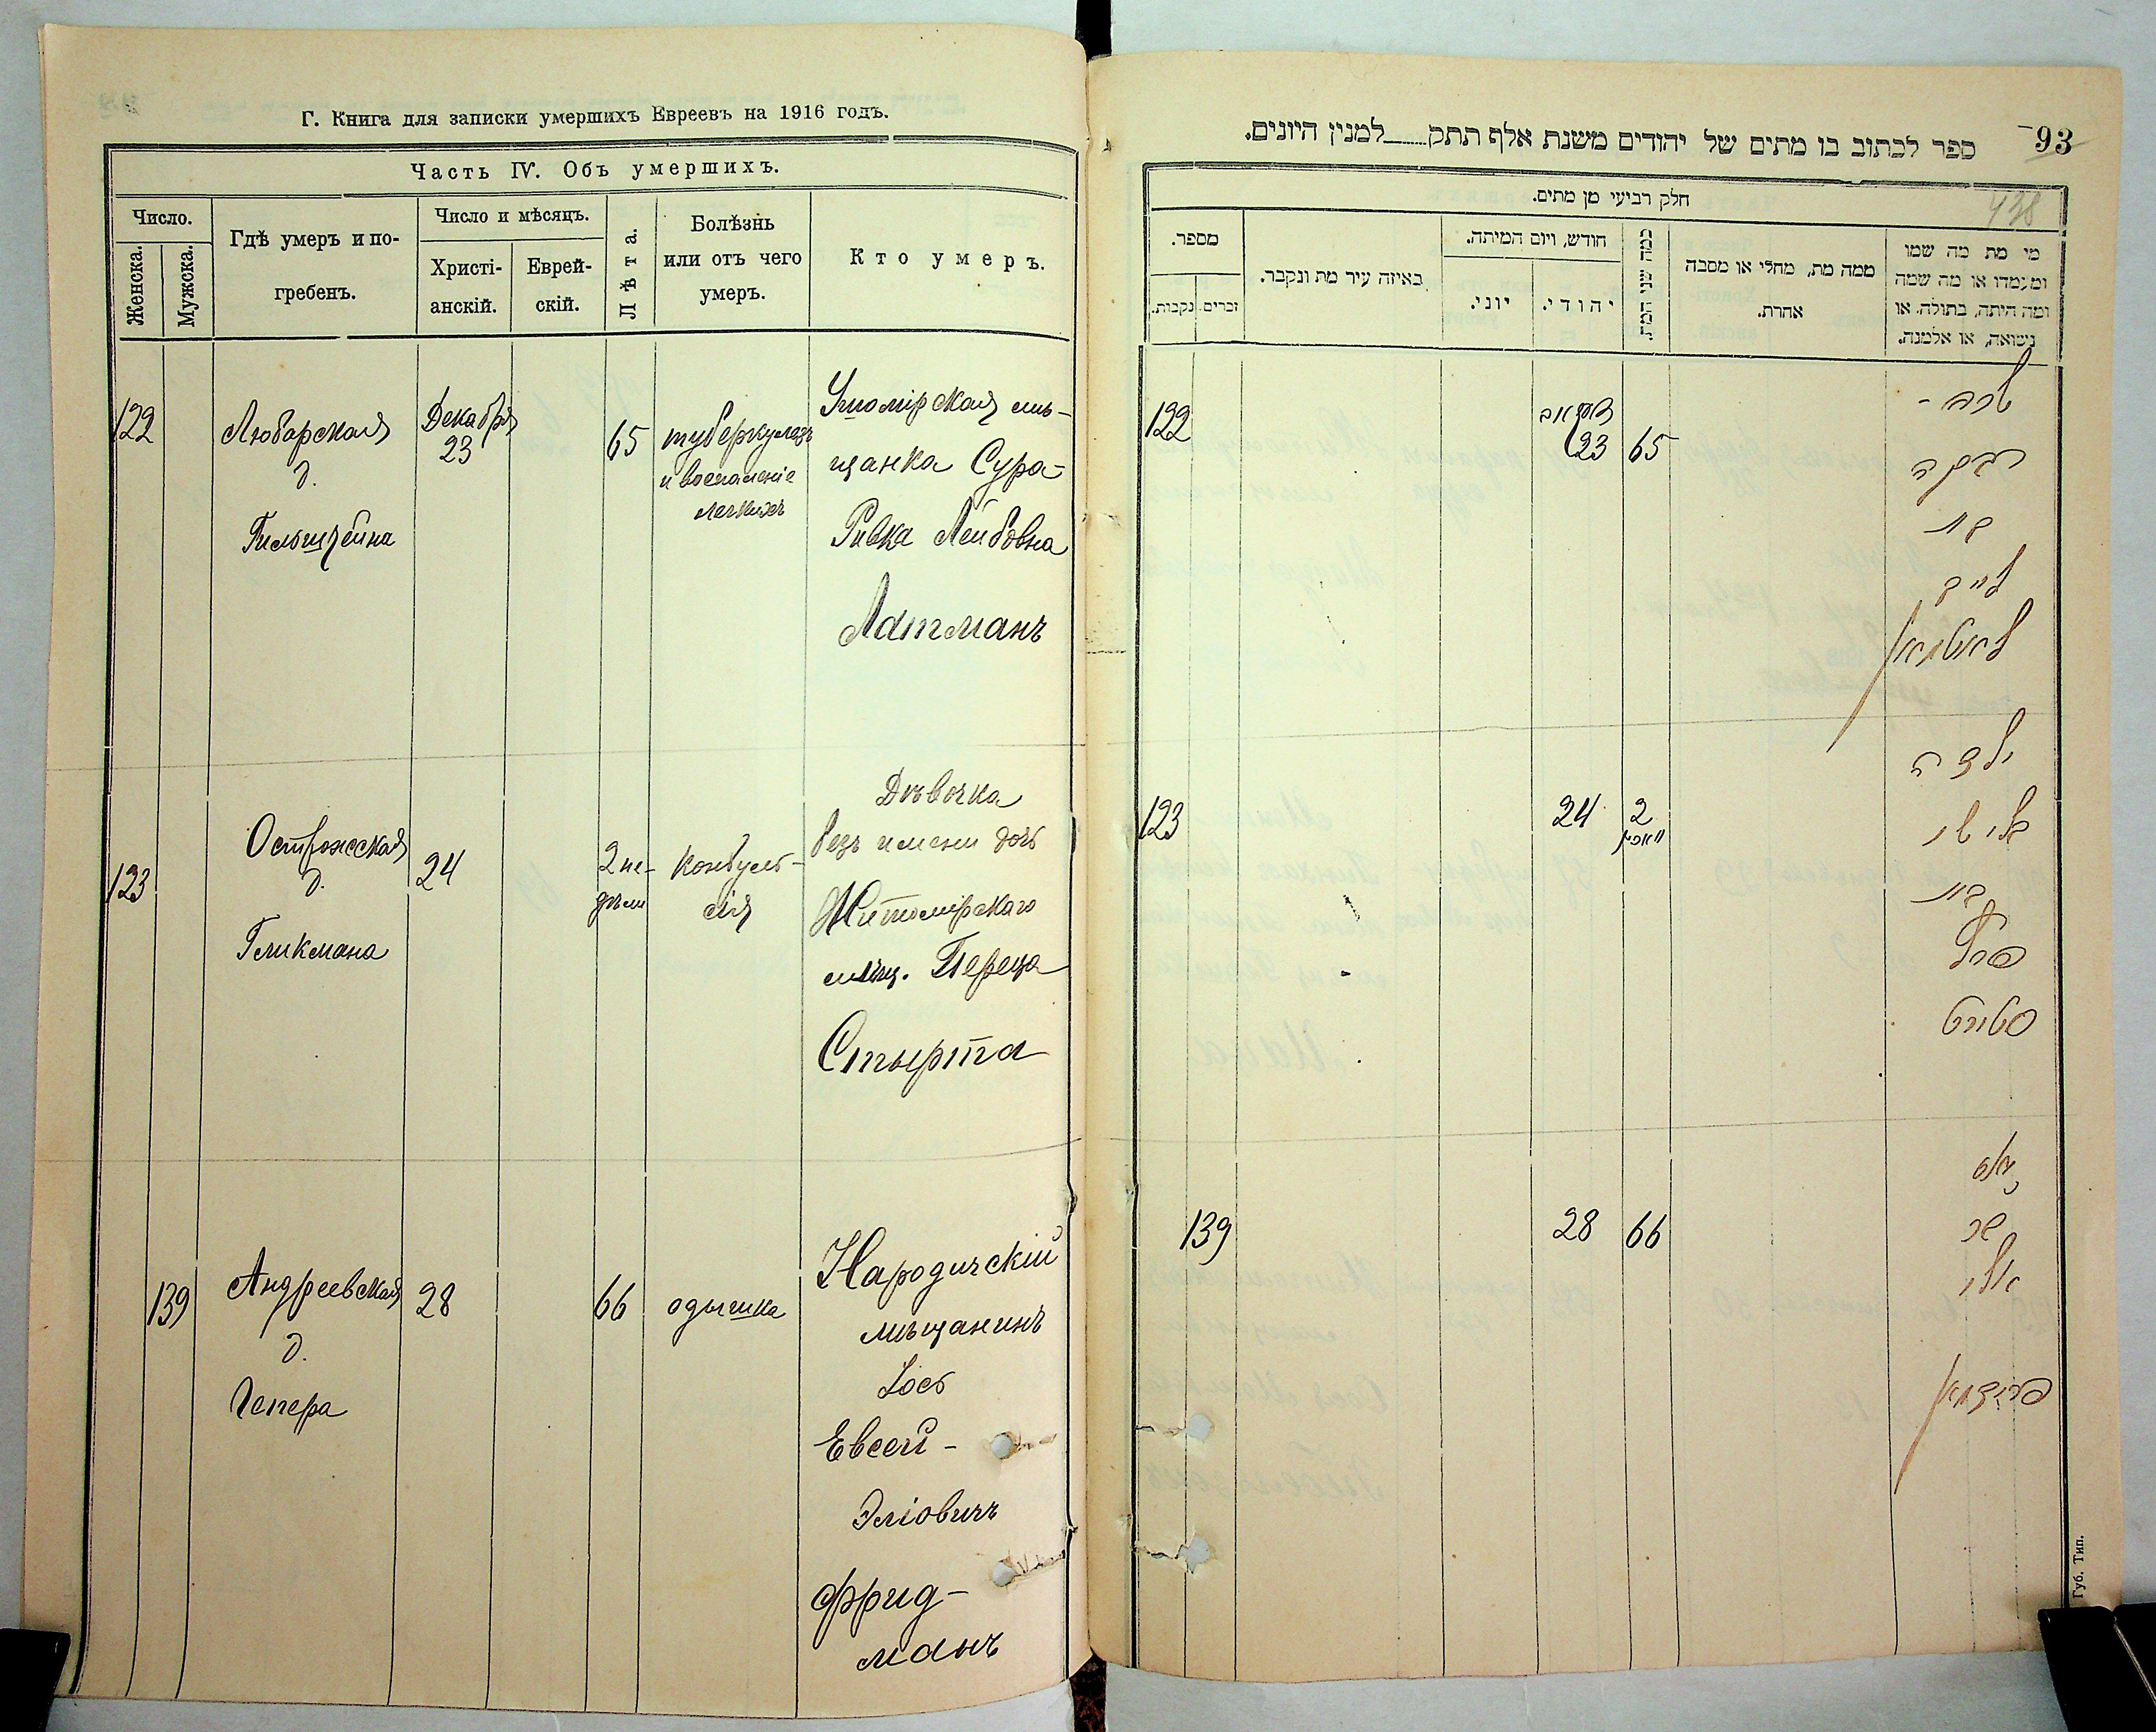 Г. Книга для записки умершихъ Евреевъ на 1916 годъ.
Часть IV. Объ умершихъ.
Число.
Женска.
Мужска.
Гдѣ умеръ и по-
гребенъ.
Число и мѣсяцъ.
Христі-
анскій.
Еврей-
скій.
Лѣта.
Болѣзнь
или отъ чего
умеръ.
Кто умеръ.
122
Любарская
д.
Гильштейна
Декабря
23
65
туберкулезъ
и воспаленіе
легкихъ
Ушомірская мѣ-
щанка Сура-
Ривка Лейбовна
Латманъ
123
Острожская
д.
Гликмана
24
2 не-
дѣли
Конвуль-
сія
Дѣвочка
безъ имени дочь
Житомірскаго
мѣщ. Переца
Стырта
139
Андреевская
д.
Гепера
28
66
одышка
Народичскій
мѣщанинъ
Іось
Евсей-
Эліовичъ
Фрид-
манъ
93
438
ספר לכתוב בו מתים של יהודים משנת אלף תתק למנין היונים.
חלק רביעי מן מתים.
מספר.
זכרים.
נקבות.
באיזה עיר מת ונקבר.
חודש, ויום המיתה.
יוני.
יהודי.
כמה שני המת.
ממה מת, מחלי או מסבה
אחרת.
מי מת מה שמו
ומעמדו או מה שמה
ומה היתה, בתולה, או
נשואה, או אלמנה.
122
23
65
שרה -
רבקה
בת
לייב
לאטמאן
123
24
2
וואכען
ילדה
בלי שם
בת
פרץ
סטירט
139
28
66
יאס
בר
אלי
פרידמאן
Губ. Тип.